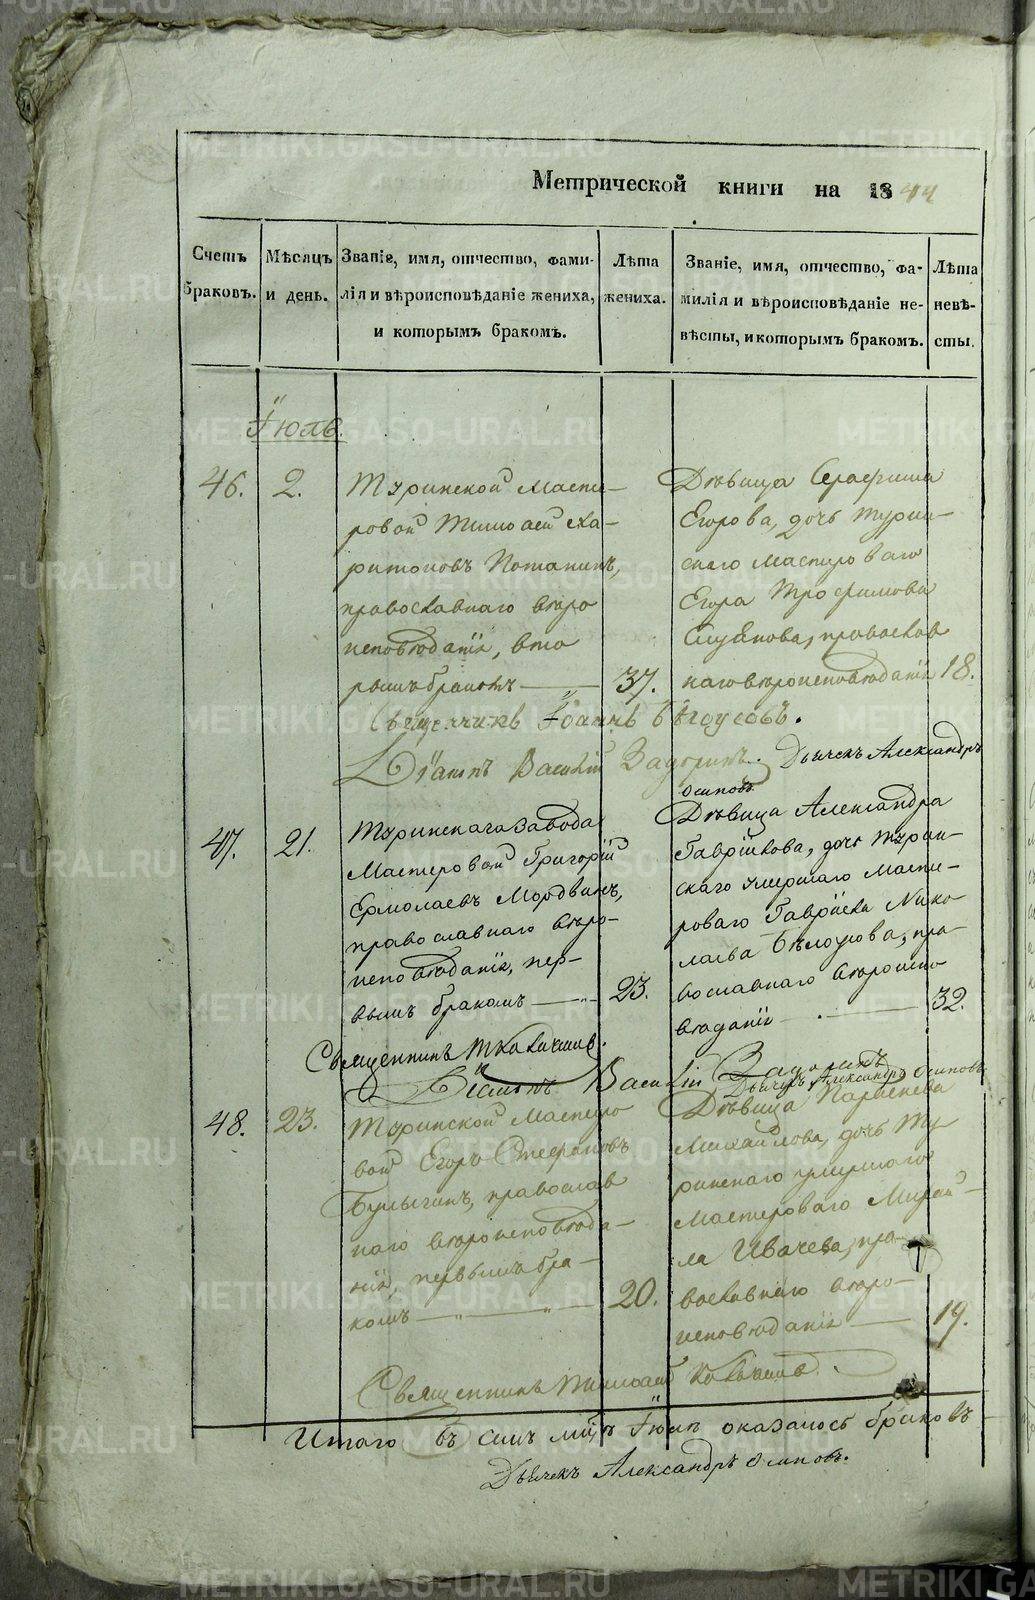 Метрической книги на 1844
Счетъ браковъ.
Мѣсяцъ и день.
Званіе, имя, отчество, фами-
лія и вѣроисповѣданіе жениха,
и которымъ бракомъ.
Лѣта жениха.
Званіе, имя, отчество, фа-
милія и вѣроисповѣданіе не-
вѣсты, и которымъ бракомъ.
Лѣта невѣ-
сты.
46.
2.
Туринской Масте-
ровой Тимоѳей Ха-
ритоновъ Потапинъ,
православнаго вѣро
исповѣданія, вто
рымъ бракомъ
37.
Дѣвица Серафима
Егорова, дочь Турин-
скаго мастероваго
Егора Трофимова
православ
наго вѣроисповѣданія
18.
Священникъ Іоаннъ Бѣлоусовъ.
Діаконъ Василій
Дьячекъ Александръ
Осиповъ
47.
21.
Туринскаго завода
Мастеровой Григорій
Ермолаевъ Мордвинъ,
православнаго вѣро-
исповѣданія, пер-
вымъ бракомъ
23.
Дѣвица Александра
Гаврійлова, дочь Турин-
скаго умершаго Масте-
роваго Гаврійла Нико-
лаева Бѣлоусова, пра-
вославнаго вѣроиспо
вѣданія
32.
Священникъ
Діаконъ Василій
Дьячекъ Александръ Осиповъ
48.
23.
Туринской Мастеро
вой Егоръ Стефановъ
Булычинъ, православ
наго вѣроисповѣда-
нія, первымъ бра-
комъ
20.
Дѣвица
Михайлова, дочь Ту-
ринскаго умершаго
Мастероваго Михай-
ла Ивачева, пра-
вославнаго вѣро-
исповѣданія
19.
Священникъ Тимоѳей
Итого въ семъ мцѣ оказалось браковъ
Дьячекъ Александръ Осиповъ.
METRIKI.GASO-URAL.RU